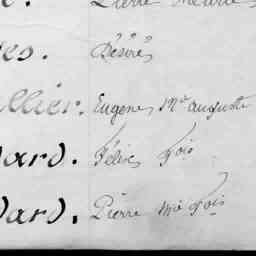 Pierre
es. Désiré,
llier. Eugène, Mie auguste
ard. Félix, Fois
dard. Pierre Mie Fois